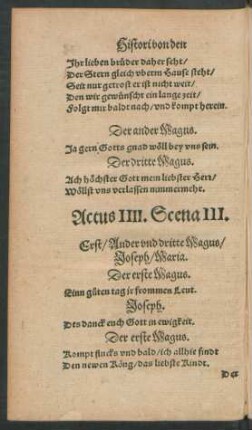 Histori von den
Ihr lieben brüder daher seht/
Der Stern gleich vberm Hause steht/
Seit nur getrost er ist nicht weit/
Den wir gewünscht ein lange zeit/
Folgt mir baldt nach/ vnd kompt herein.
Der ander Magus.
Ja gern Gotts gnad wöll bey vns sein.
Der dritte Magus.
Ach höchster Gott mein liebster Herr/
Wöllst vns verlassen nimmermehr.
Actus IIII. Scena III.
Erst/ Ander vnd dritte Magus/
Joseph/ Maria.
Der erste Magus.
Einn güten tag jr frommen Leut.
Joseph.
Des danck euch Gott in ewigkeit.
Der erste Magus.
Kompt flucks vnd bald/ ich allhie findt
Den newen Köng/ das liebste Kindt.
Der